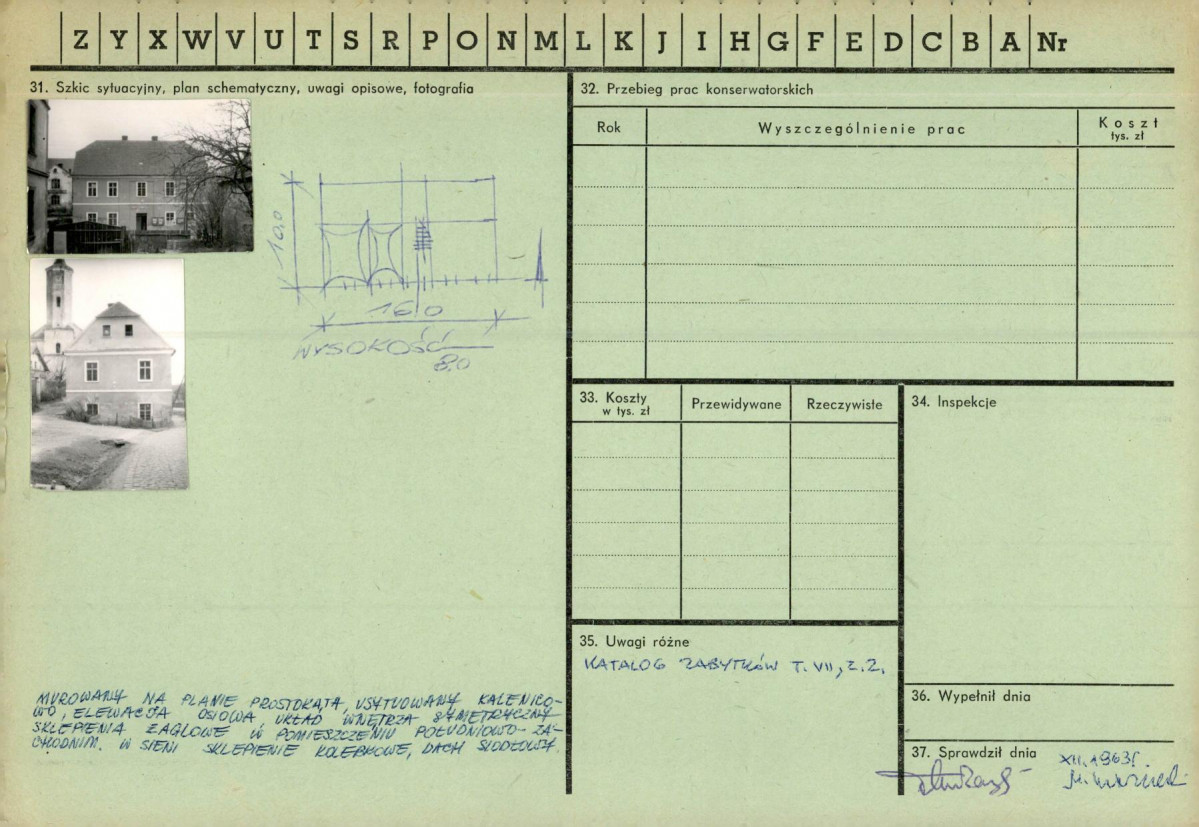 Z Y X W V U T S R P O N M L K J I H G F E D C B A Nr
31. Szkic sytuacyjny, plan schematyczny, uwagi opisowe, fotografia
10,0
16,0
WYSOKOŚĆ
8,0
MUROWANY NA PLANIE PROSTOKĄTA, USYTUOWANY KALENICO-
WO, ELEWACJA OSIOWA, UKŁAD WNĘTRZA SYMETRYCZNY
SKLEPIENIA ŻAGLOWE W POMIESZCZENIU POŁUDNIOWO-ZA-
CHODNIM. W SIENI SKLEPIENIE KOLEBKOWE, DACH SIODŁOWY.
32. Przebieg prac konserwatorskich
Rok Wyszczególnienie prac Koszt
tys. zł
33. Koszty Przewidywane Rzeczywiste
w tys. zł
34. Inspekcje
35. Uwagi różne
KATALOG ZABYTKÓW T. VII, Z. 2.
36. Wypełnił dnia
37. Sprawdził dnia
XII. 1963r.